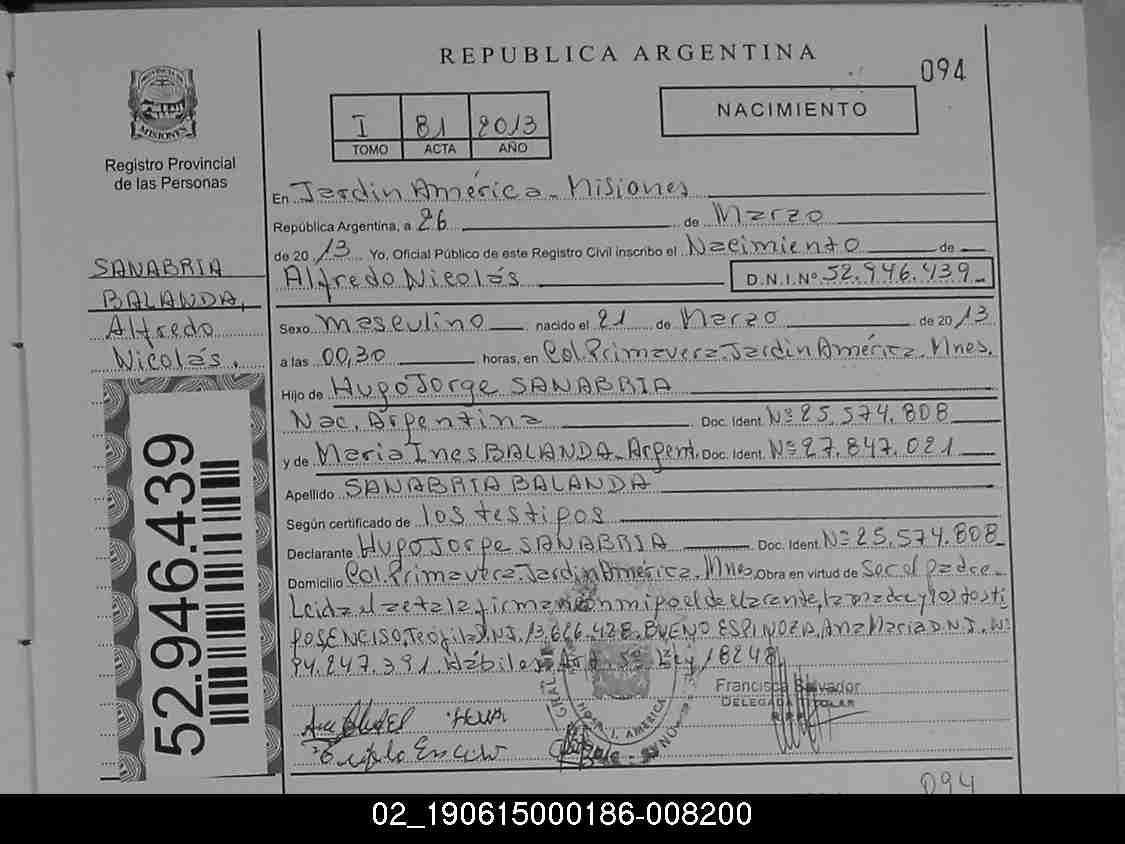 REPUBLICA ARGENTINA
094
MISIONES
Registro Provincial
de las Personas
I 81 2013
TOMO ACTA AÑO
NACIMIENTO
En Jardin América - Misiones
República Argentina, a 26 de Marzo
de 20 13 Yo, Oficial Público de este Registro Civil inscribo el Nacimiento de
Alfredo Nicolás D.N.I. Nº 52.946.439
SANABRIA
BALANDA,
Alfredo
Nicolás.
Sexo masculino nacido el 21 de Marzo de 20 13
a las 00,30 horas, en Col. Primavera. Jardin América. Mnes.
Hijo de Hugo Jorge SANABRIA
Nac. Argentina Doc. Ident. Nº 25.574.808
y de Maria Ines BALANDA - Argent. Doc. Ident. Nº 27.847.021
Apellido SANABRIA BALANDA
Según certificado de los testigos
Declarante Hugo Jorge SANABRIA Doc. Ident. Nº 25.574.808
Domicilio Col. Primavera. Jardin América. Mnes. Obra en virtud de Ser el padre
Leida el acta la firman conmigo el declarante, la madre y los testi
gos ENCISO, Teófila D.N.I. 13.626.428. BUENO ESPINOZA, Ana Maria D.N.I. Nº
94.247.391. Hábiles Art. 5º Ley 18248
Francisca Salvador
DELEGADA TITULAR
52.946.439
094
02_190615000186-008200